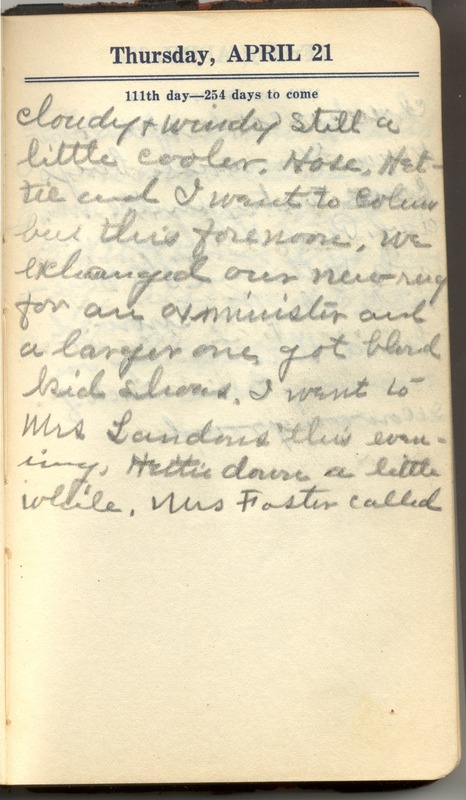 Thursday, APRIL 21
111th day—254 days to come
cloudy + windy still a
little cooler. Hose, Het-
tie and I went to Colum
bus this forenoon, we
exhanged our new rug
for an axminister and
a larger one, got blond
kid shoes. I went to
Mrs Landons this even-
ing. Hettie down a little
while. Mrs Foster called